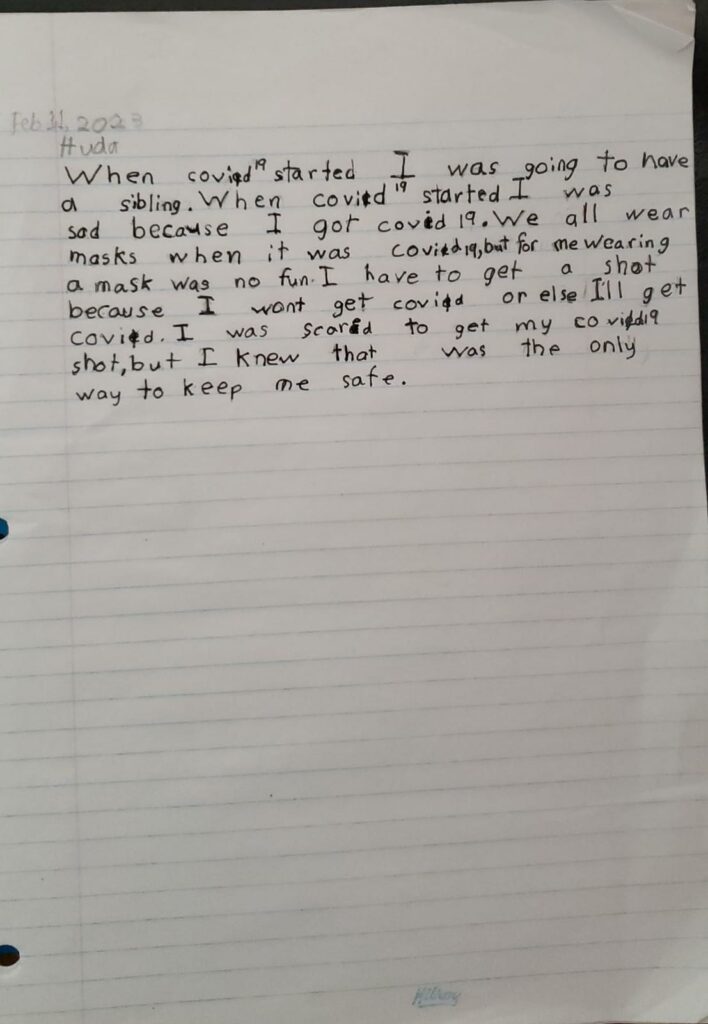 Feb 2023
Huda
When covid 19 started I was going to have
a sibling. When covid 19 started I was
sad because I got covid 19. We all wear
masks when it was covid 19, but for me wearing
a mask was no fun. I have to get a shot
because I wont get covid or else I'll get
covid. I was scared to get my covid 19
shot, but I knew that was the only
way to keep me safe.
Hilroy